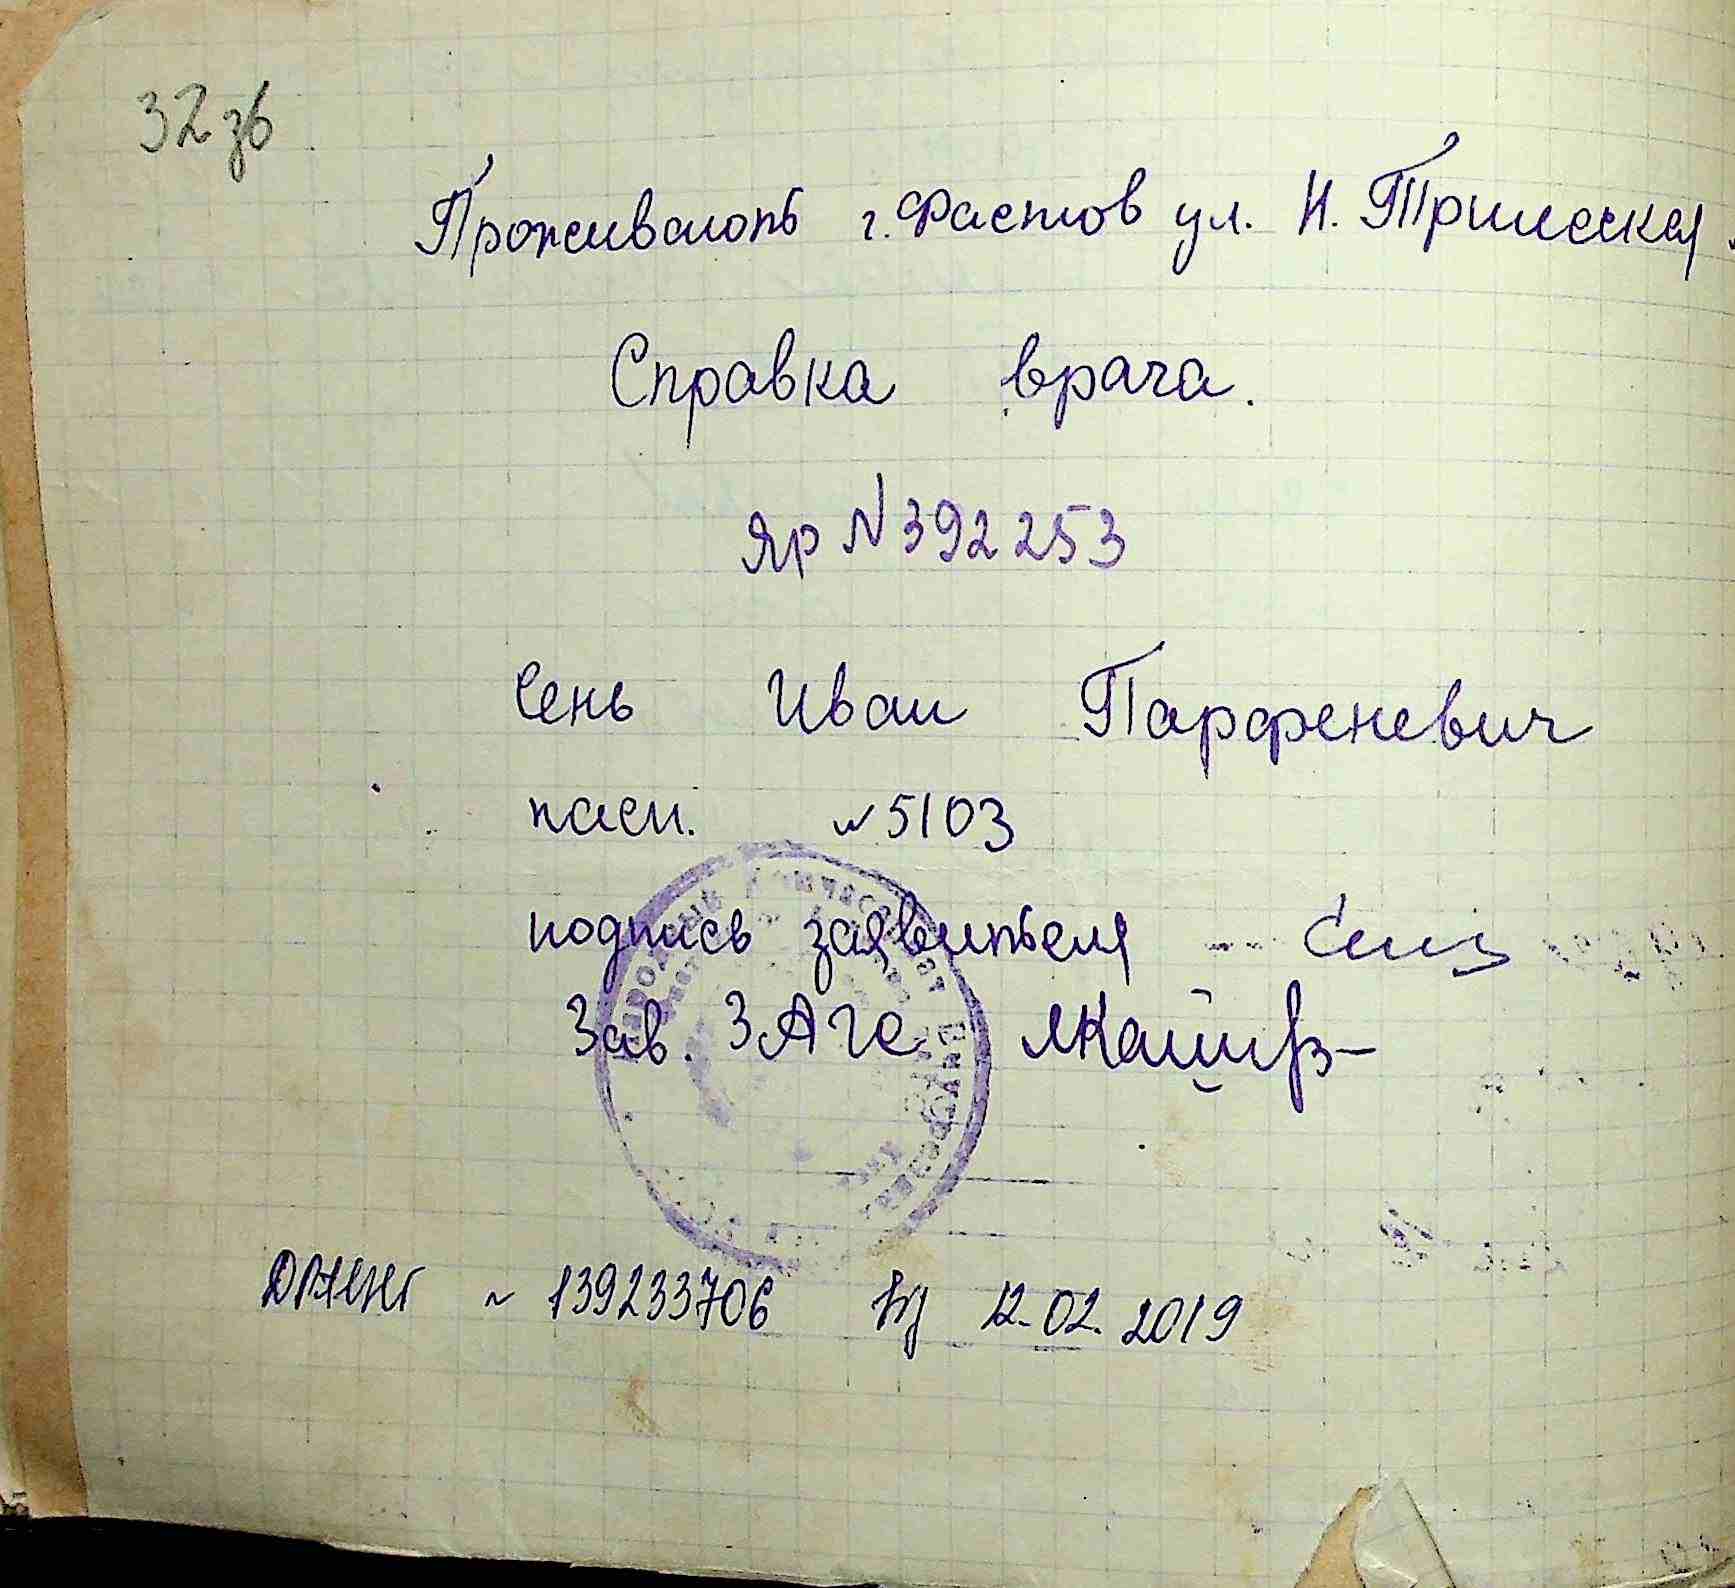 32 зв
Проживають г. Фастов ул. Н. Трилесская
Справка врача.
Яр N 392253
Сень Иван Парфеневич
пасп. N 5103
подпись заявителя -- Сень
Зав. ЗАГС
ДРАЦСГ N 139233706 від 12.02.2019